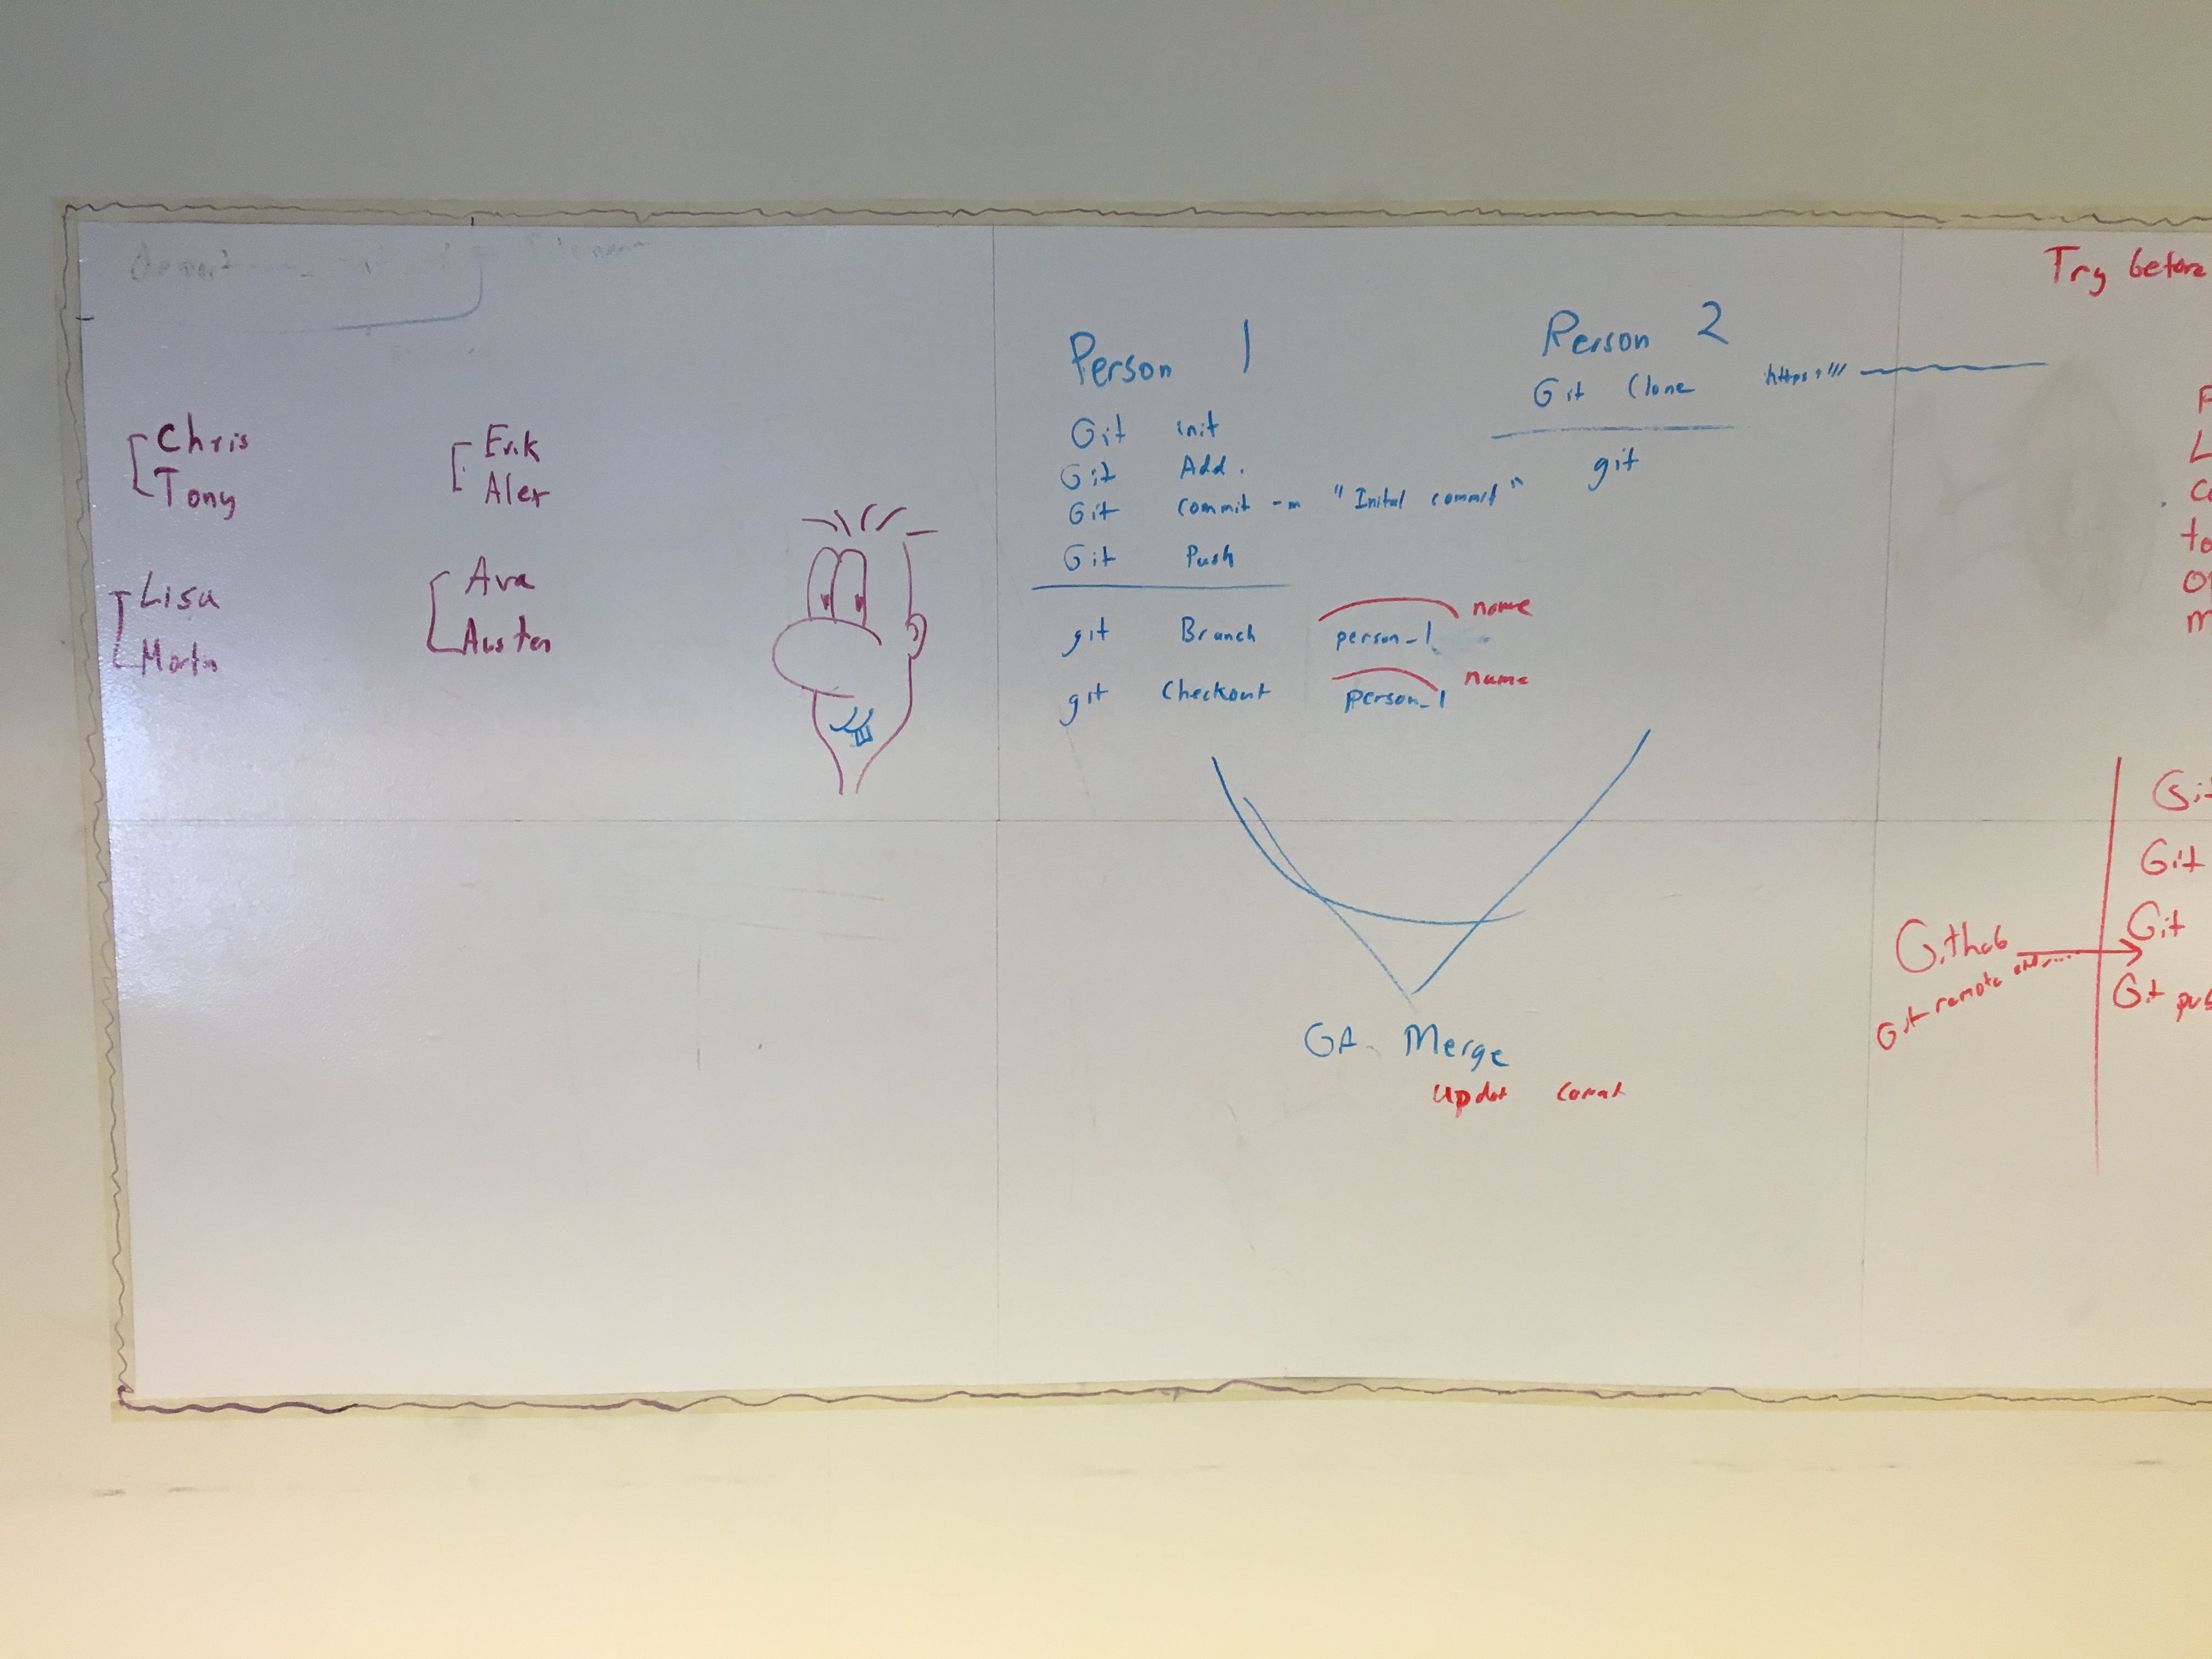 Chris
Tony
Erik
Alex
Lisa
Martin
Ava
Austen
Person 1
Git init
Git Add .
Git commit -m "Inital commit"
Git Push
git Branch person_1 name
git Checkout person_1 name
Person 2
Git Clone https:///
git
Git Merge
Updat
Try before
L
to
Github
Git remote add...
Git
Git
Git
Git pus